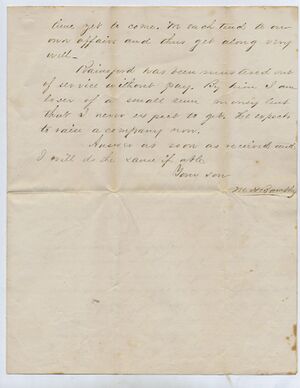 time yet to come. We each tend to our
own affairs and thus get along very
well—
Rainsford has been mustered out
of service without pay. By him I am
loser of a small sum money but
that I never expect to get. He expects
to raise a company now.
Answer as soon as received and
I will do the same if able
Your son